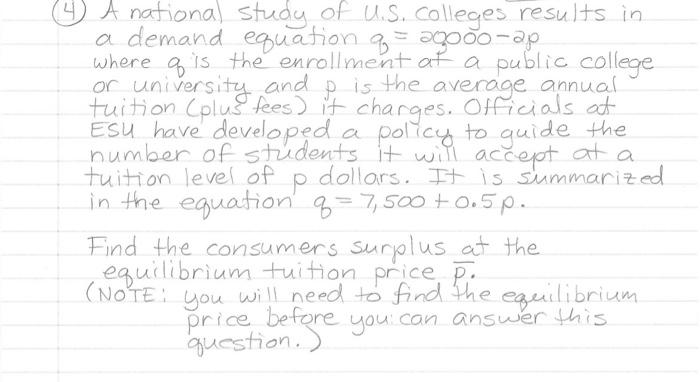 ④ A national study of U.S. colleges results in
a demand equation q = 29000-2p
where q is the enrollment at a public college
or university and p is the average annual
tuition (plus fees) it charges. Officials at
ESU have developed a policy to guide the
number of students it will accept at a
tuition level of p dollars. It is summarized
in the equation q = 7,500 + 0.5p.
Find the consumers surplus at the
equilibrium tuition price p̅.
(NOTE: you will need to find the equilibrium
price before you can answer this
question.)